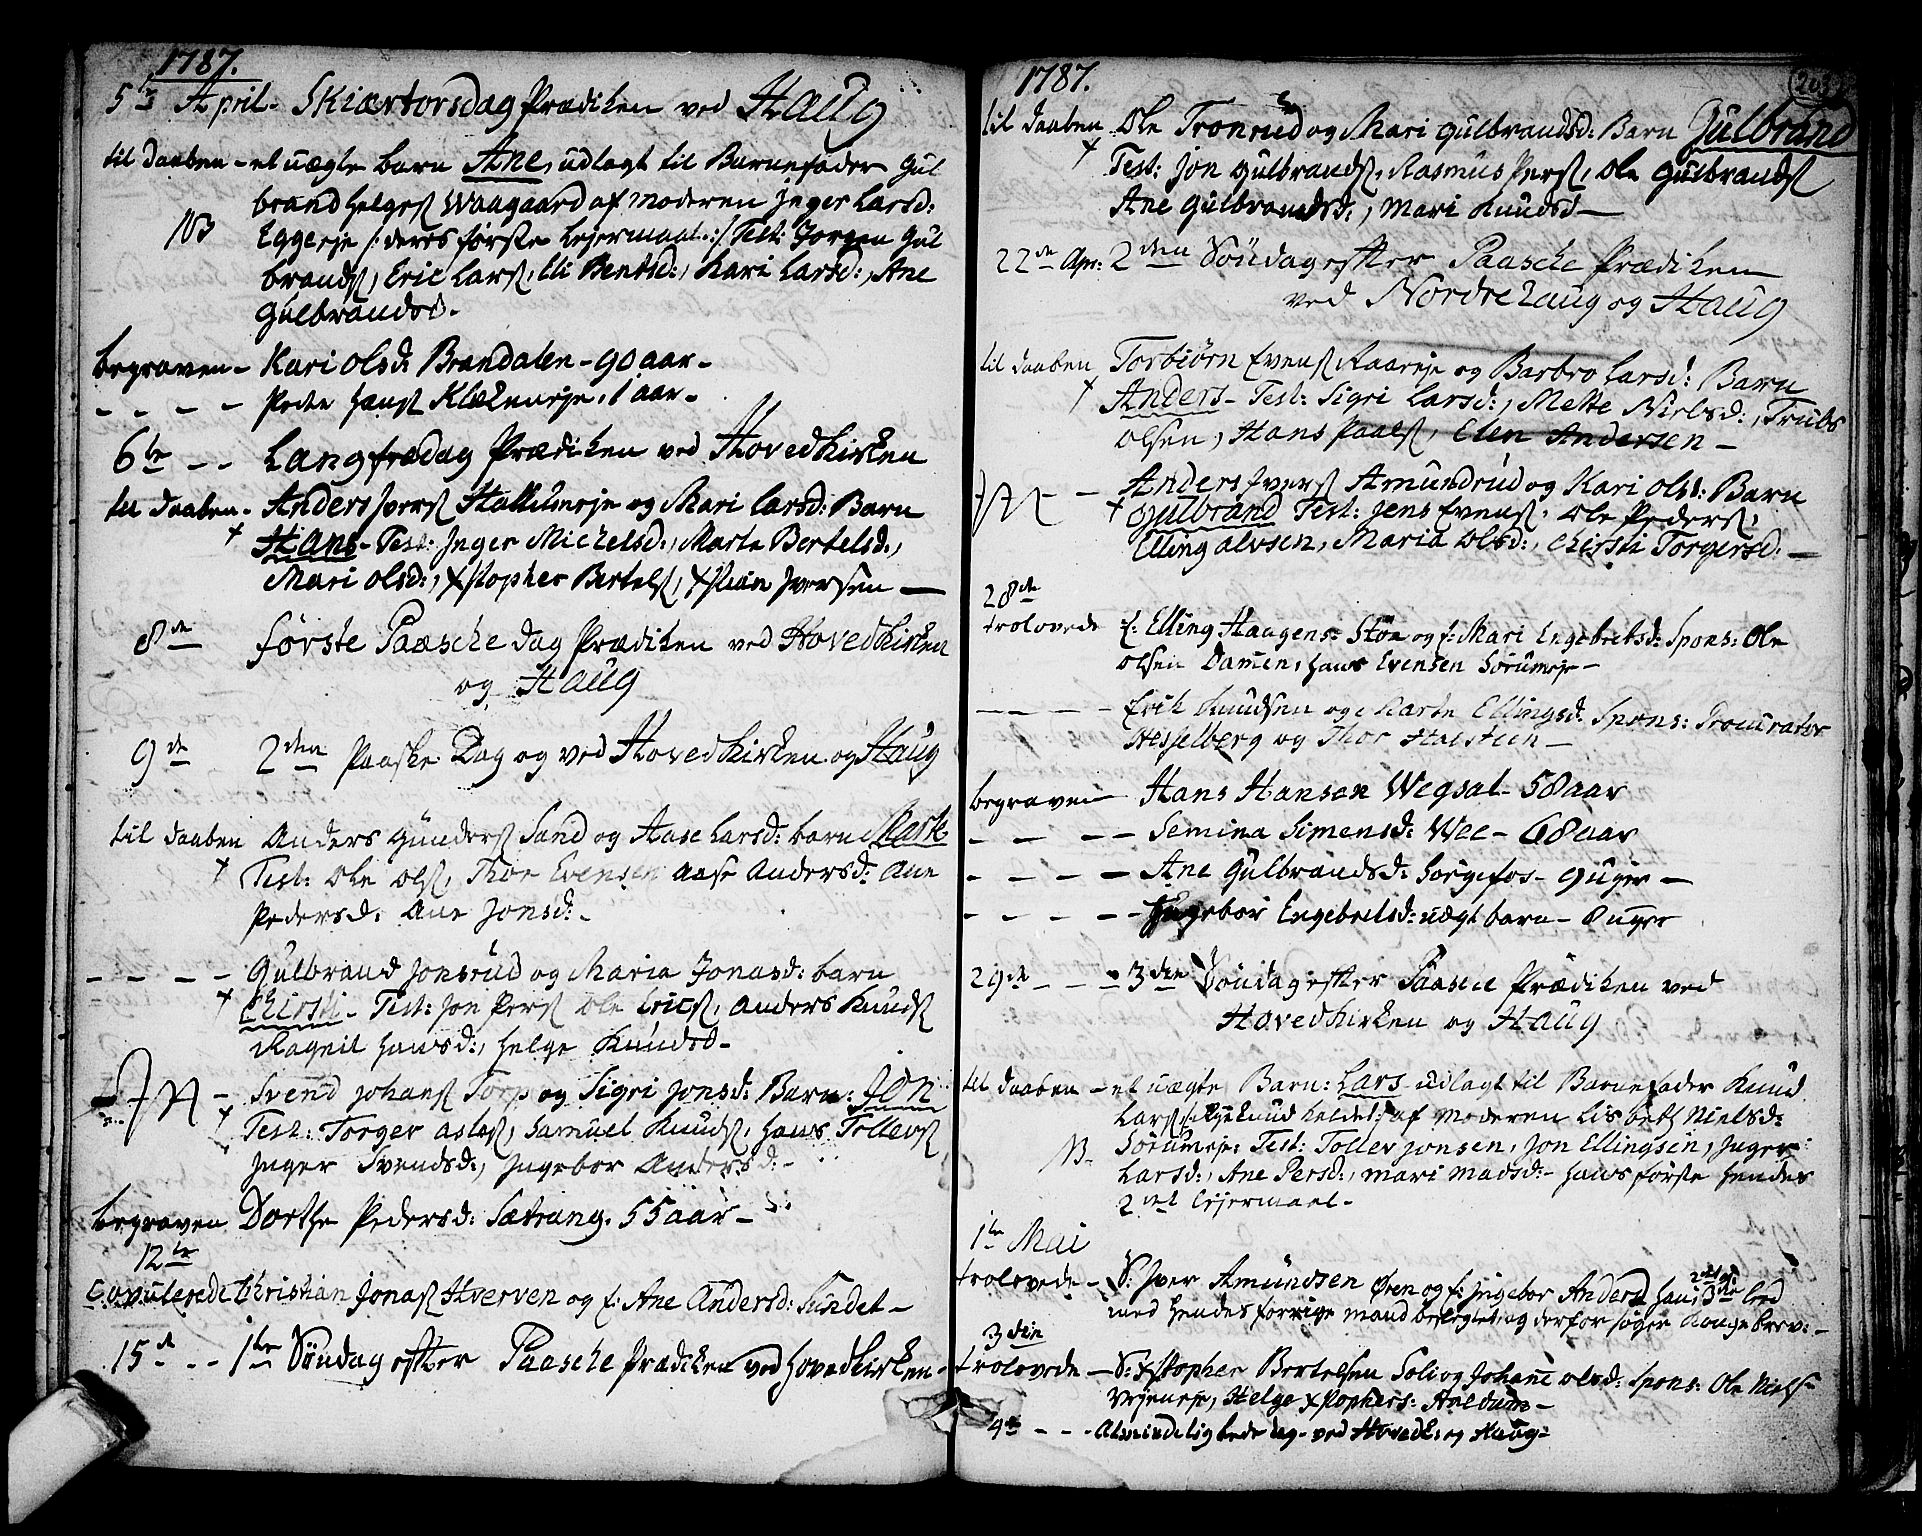 1787.
5te April - Skiærtorsdag Prædiken ved Haug
til daaben - et uægte barn Ane, udlagt til Barnefader Gul
brand Helges: Waagaard af moderen Inger Larsd:
NB Eggeeje /: deres første Lejermaal :/ Test: Jorgen Gul
brands:, Eric Lars:, Eli Bentsd:, Kari Larsd:, Ane
Gulbrandsd.
begraven - Kari Olsd: Brendalen - 90 aar -
- - - - Peder Hans: Klækeneje. 1 aar -
6te - - Langfredag Prædiken ved Hovedkirken
til daaben - Anders Ivers: Hallumeje og Mari Larsd: Barn
† Hans - Test: Inger Michelsd:, Marte Bertelsd:,
Mari Olsd:, Xstopher Bertels:, Xstian Iversen -
8de første Paasche dag Prædiken ved Hovedkirken
og Haug
9de 2den Paaske Dag og ved Hovedkirken og Haug
til daaben Anders Gunders: Sand og Aase Larsd: barn Marte
† Test: Ole Ols:, Thor Evensen Aase Andersd: Ane
Pedersd: Ane Jonsd: -
- - - - Gulbrand Jonsrud og Maria Jonasd: barn
† Chirsti - Test: Jon Pers: Ole Erics:, Anders Knuds:
Ragnil Hansd:, Helge Knudsd -
- Svend Johans: Torp og Sigri Jonsd: Barn: Jon
† Test: Torger Aslas:, Samuel Knuds:, Hans Tollevs:
Inger Svendsd:, Ingebor Andersd: -
begraven Dorthe Pedersd: Sætrang. 55 aar -
12te
Copulerede Christian Jonas: Hverven og f: Ane Andersd: Sundet -
15de - - 1te Søndag efter Paasche Prædiken ved Hovedkirken -
1787.
205
til daaben Ole Tronrud og Mari Gulbrandsd: Barn Gulbrand
† Test: Jon Gulbrands:, Rasmus Pers:, Ole Gulbrands:
Ane Gulbrandsd:, Mari Knudsd -
22de Apr: 2den Søndag efter Paasche Prædiken
ved Nordrehaug og Haug
til daaben Torbiørn Evens: Raaeje og Barbro Larsd: Barn
† Anders - Test: Sigri Larsd:, Mette Nielsd:, Truls
Olsen, Hans Paals:, Elen Andersen -
- - Anders Ivers: Amundrud og Kari Olsd: Barn
† Gulbrand Test: Jens Evens:, Ole Peders:,
Elling Alvsen, Maria Olsd:, Chirsti Torgersd: -
28de
trolovede E: Elling Haagens: Støa og f: Mari Engebretsd: Spons: Ole
Olsen Damen, Hans Evensen Sørumeje -
- - - - Erik Knudsen og Marte Ellingsd: Spons: Procurator
Hesselberg og Thor Halsteen -
begraven - Hans Hansen Wegsal - 58 aar
- - - - Semina Simensd: Wee - 68 aar
- - - - Ane Gulbrandsd: Sorgefos - 9 uger -
- - - - Ingebor Engebretsd: uægt barn - 8 uger
29de - - - 3den Søndag efter Paasche Prædiken ved
Hovedkirken og Haug
til daaben - et uægte Barn: Lars udlagt til Barnefader Knud
Lars: af Moderen Lisbeth Nielsd:
NB. Sørumeje: Test: Tollev Jonsen, Jon Ellingsen, Inger
Larsd:, Ane Persd:, Mari Madsd: - Hans første Hendes
2det Lejermaal -
1te Mai
trolovede - S: Iver Amundsen Øren og f: Ingebor Andersd Hans 3die led
2det og
med hendes forrige mand beslegtet, og derfor søger Konge brev: -
3die
trolovede - S: Xstopher Bertelsen Soli og Johane Olsd: Spons: Ole Niels:
Veseneje, Helge Xstophers: Askdams -
4de - - - Almindelig bededag - ved Hovedk: og Haug -